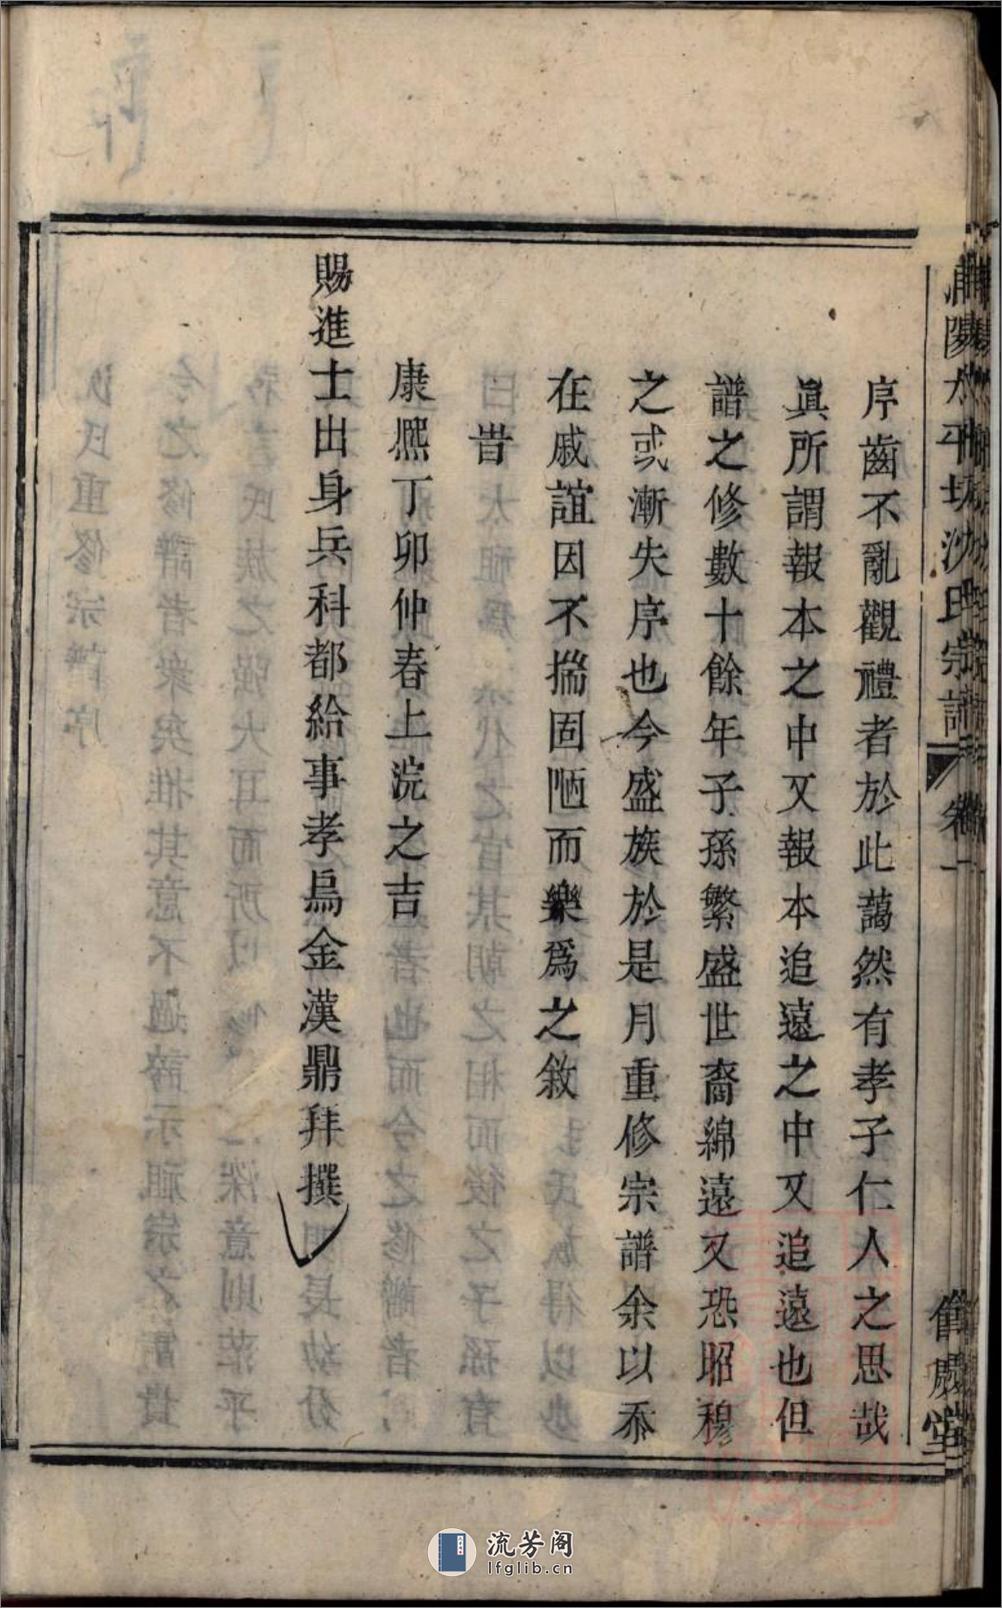 序齒不亂觀禮者於此藹然有孝子仁人之思哉
眞所謂報本之中又報本追遠之中又追遠也但
譜之修數十餘年子孫繁盛世裔綿遠又恐昭穆
之或漸失序也今盛族於是月重修宗譜余以忝
在戚誼因不揣固陋而樂爲之敘
昔
康熈丁卯仲春上浣之吉
賜進士出身兵科都給事孝烏金漢鼎拜撰
陽太平坊沙氏宗譜
卷一
舊慶堂
流芳阁
lfglib.cn